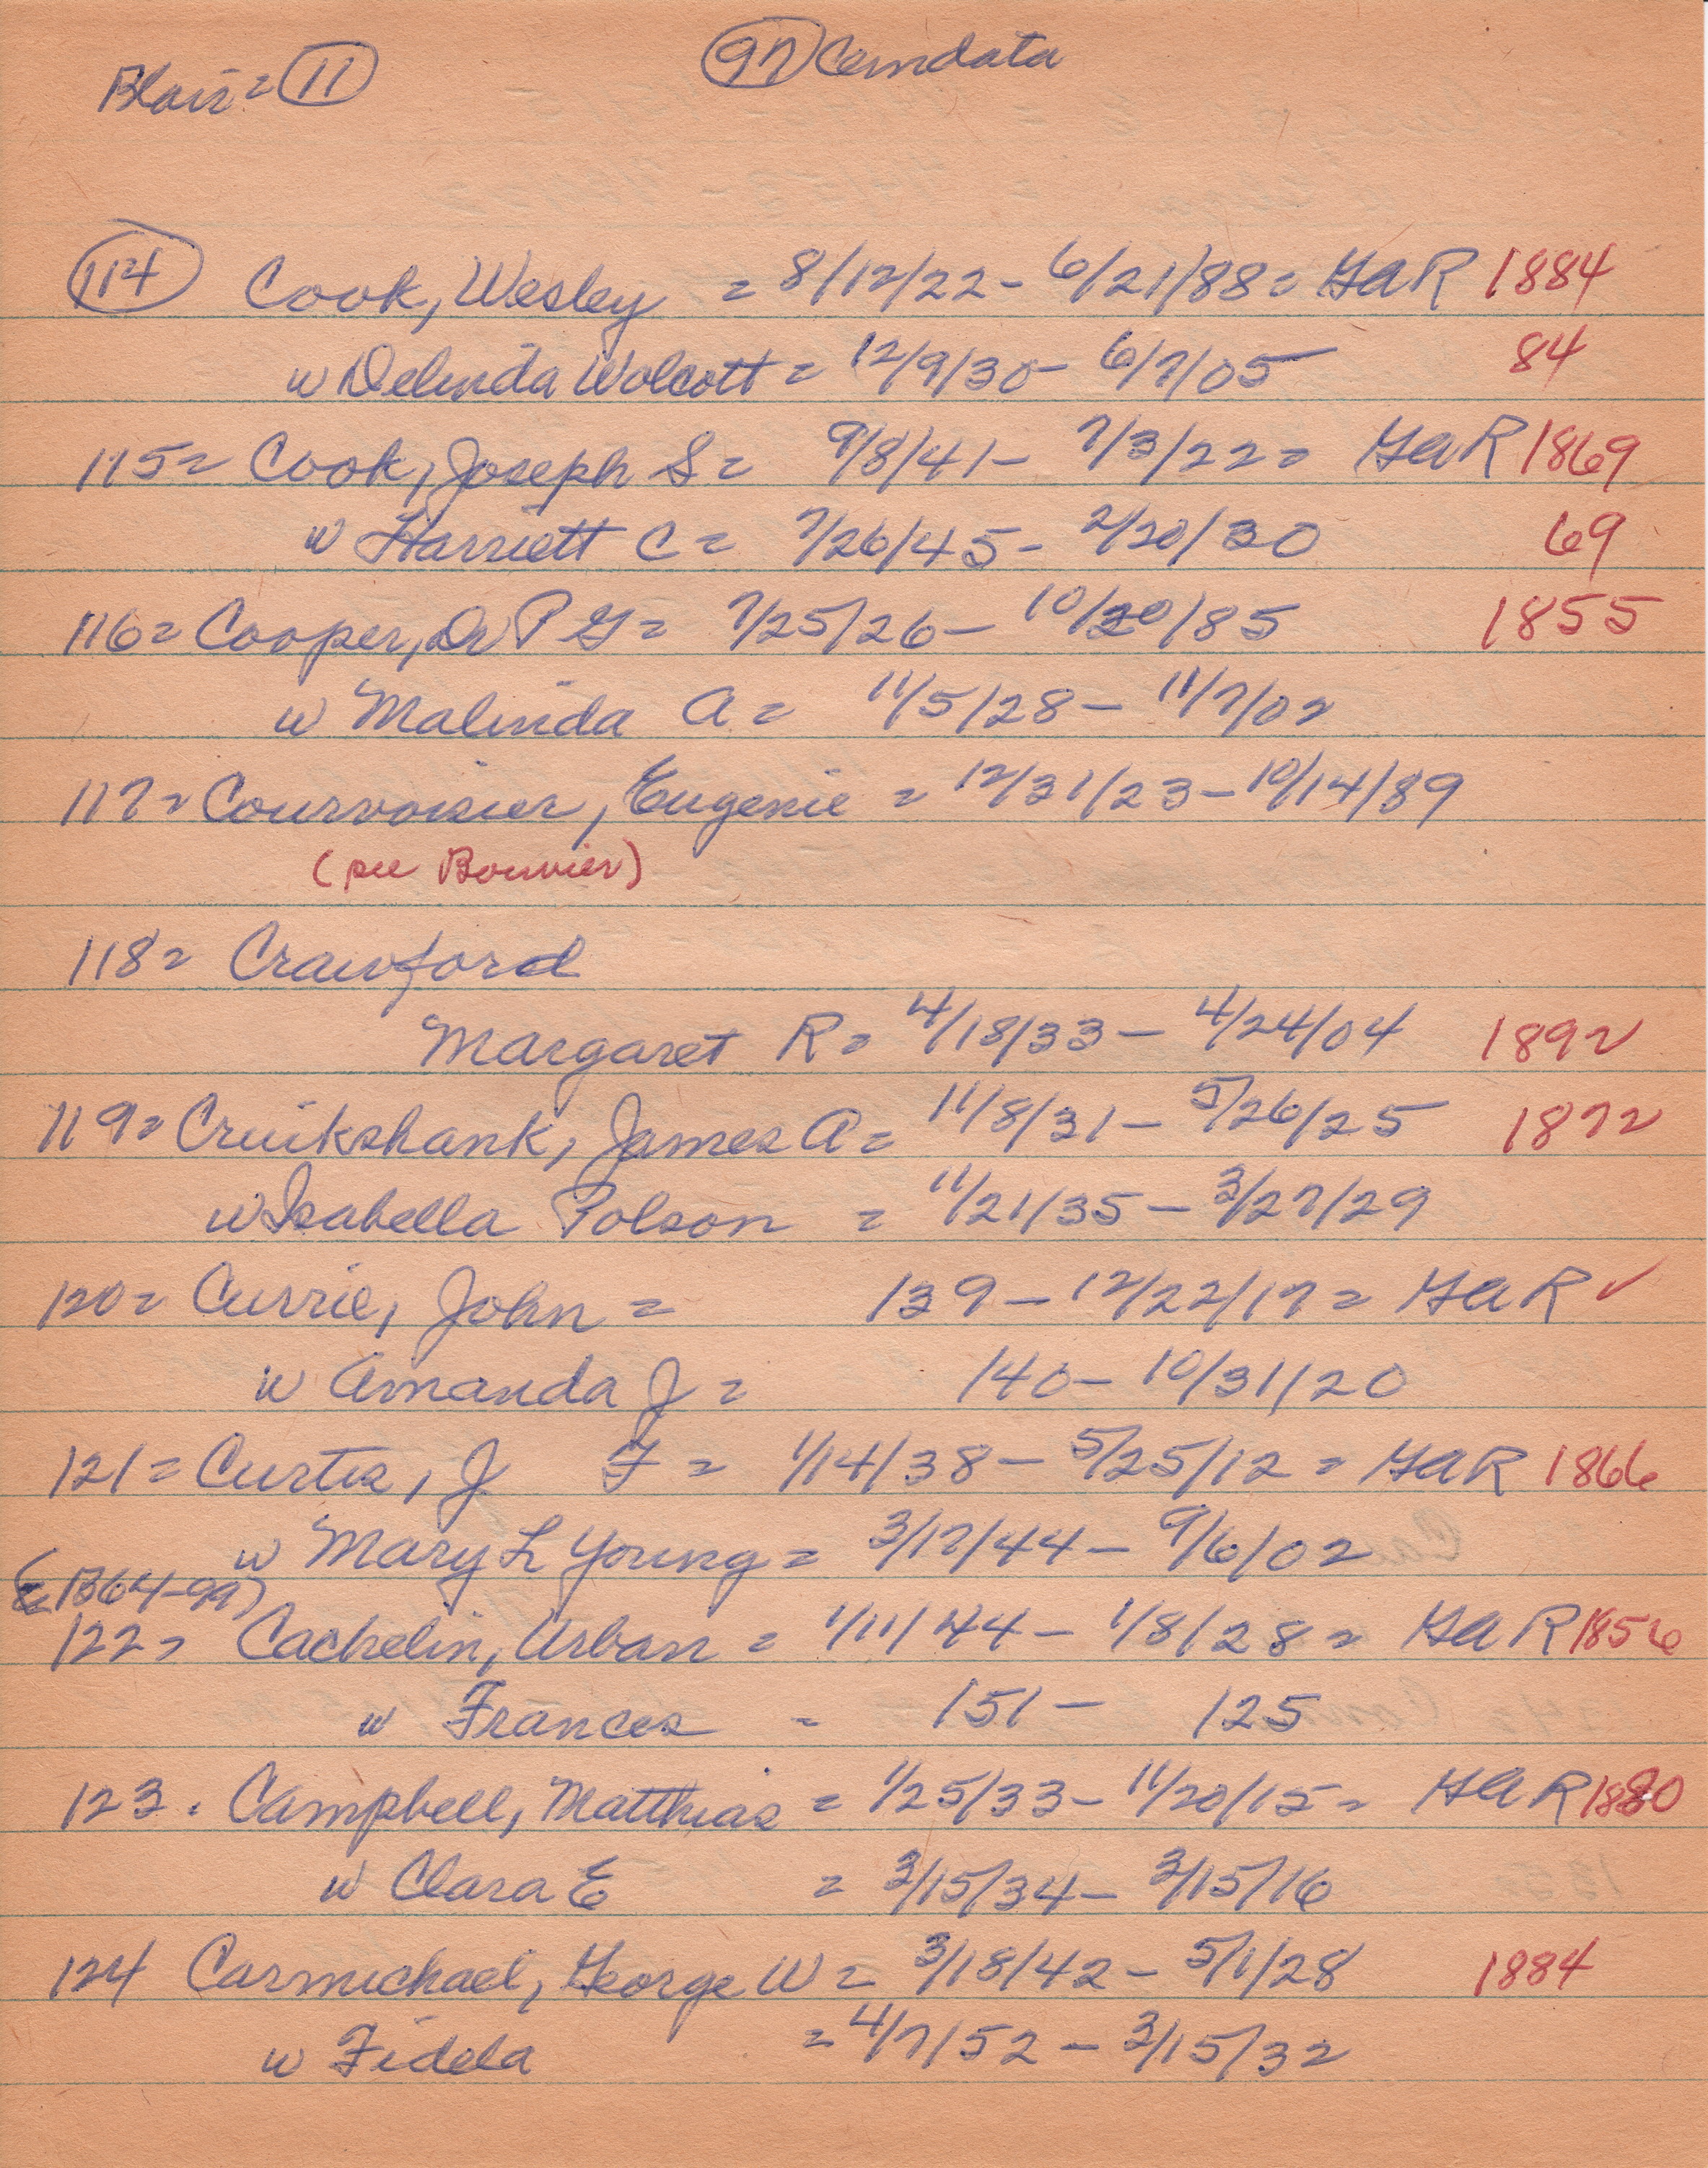 Blair = 11
97 Cemdata
114 Cook, Wesley = 8/12/22 - 6/21/88 = GAR 1884
w Delinda Wolcott = 12/9/30 - 6/7/05 84
115 = Cook, Joseph S = 9/8/41 - 7/3/22 = GAR 1869
w Harriett C = 7/26/45 - 2/20/30 69
116 = Cooper, Dr P G = 7/25/26 - 10/20/85 1855
w Malinda A = 11/5/28 - 11/7/02
117 = Courvoisier, Eugenie = 12/31/23 - 10/14/89
(see Bouvier)
118 = Crawford
Margaret R = 4/18/33 - 4/24/04 1892
119 = Cruikshank, James A = 11/8/31 - 5/26/25 1872
w Isabella Polson = 11/21/35 - 3/27/29
120 = Currie, John = 139 - 12/22/17 = GAR ✓
w Amanda J = 140 - 10/31/20
121 = Curtis, J F = 1/14/38 - 5/25/12 = GAR 1866
w Mary L Young = 3/17/44 - 9/6/02
B64-99)
122 = Cachelin, Urban = 1/11/44 - 1/8/28 = GAR 1856
w Frances = 151 - 125
123. Campbell, Matthias = 1/25/33 - 11/20/15 = GAR 1880
w Clara E = 3/15/34 - 3/15/16
124 Carmichael, George W = 3/18/42 - 5/1/28 1884
w Fidela = 4/7/52 - 3/15/32